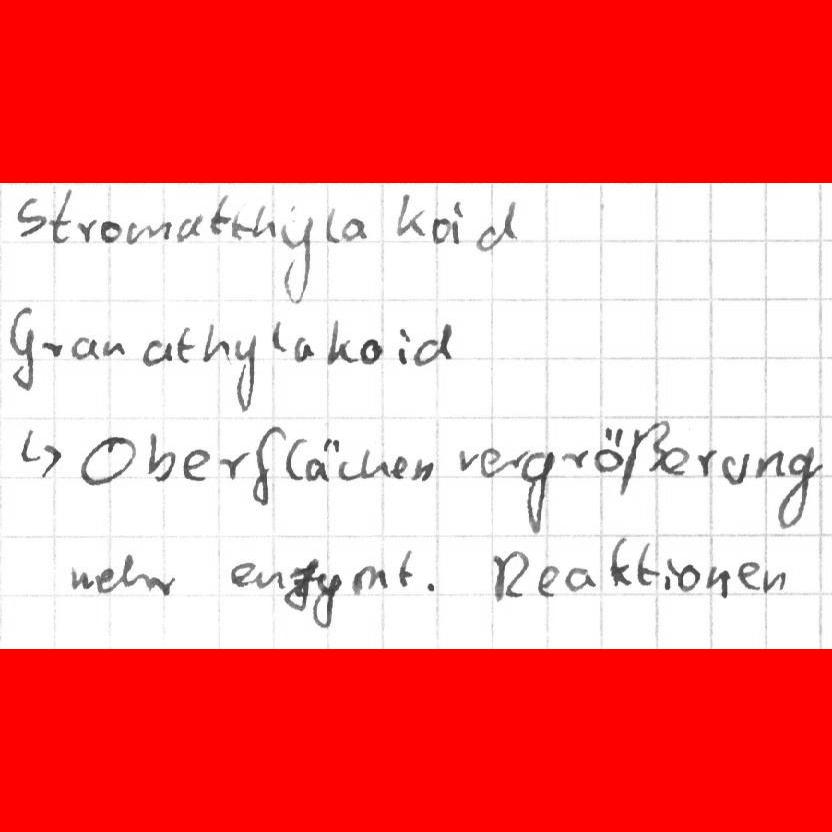 Stromatthyla koid
Granathylakoid
↳ Oberflächenvergrößerung
mehr enzymt. Reaktionen